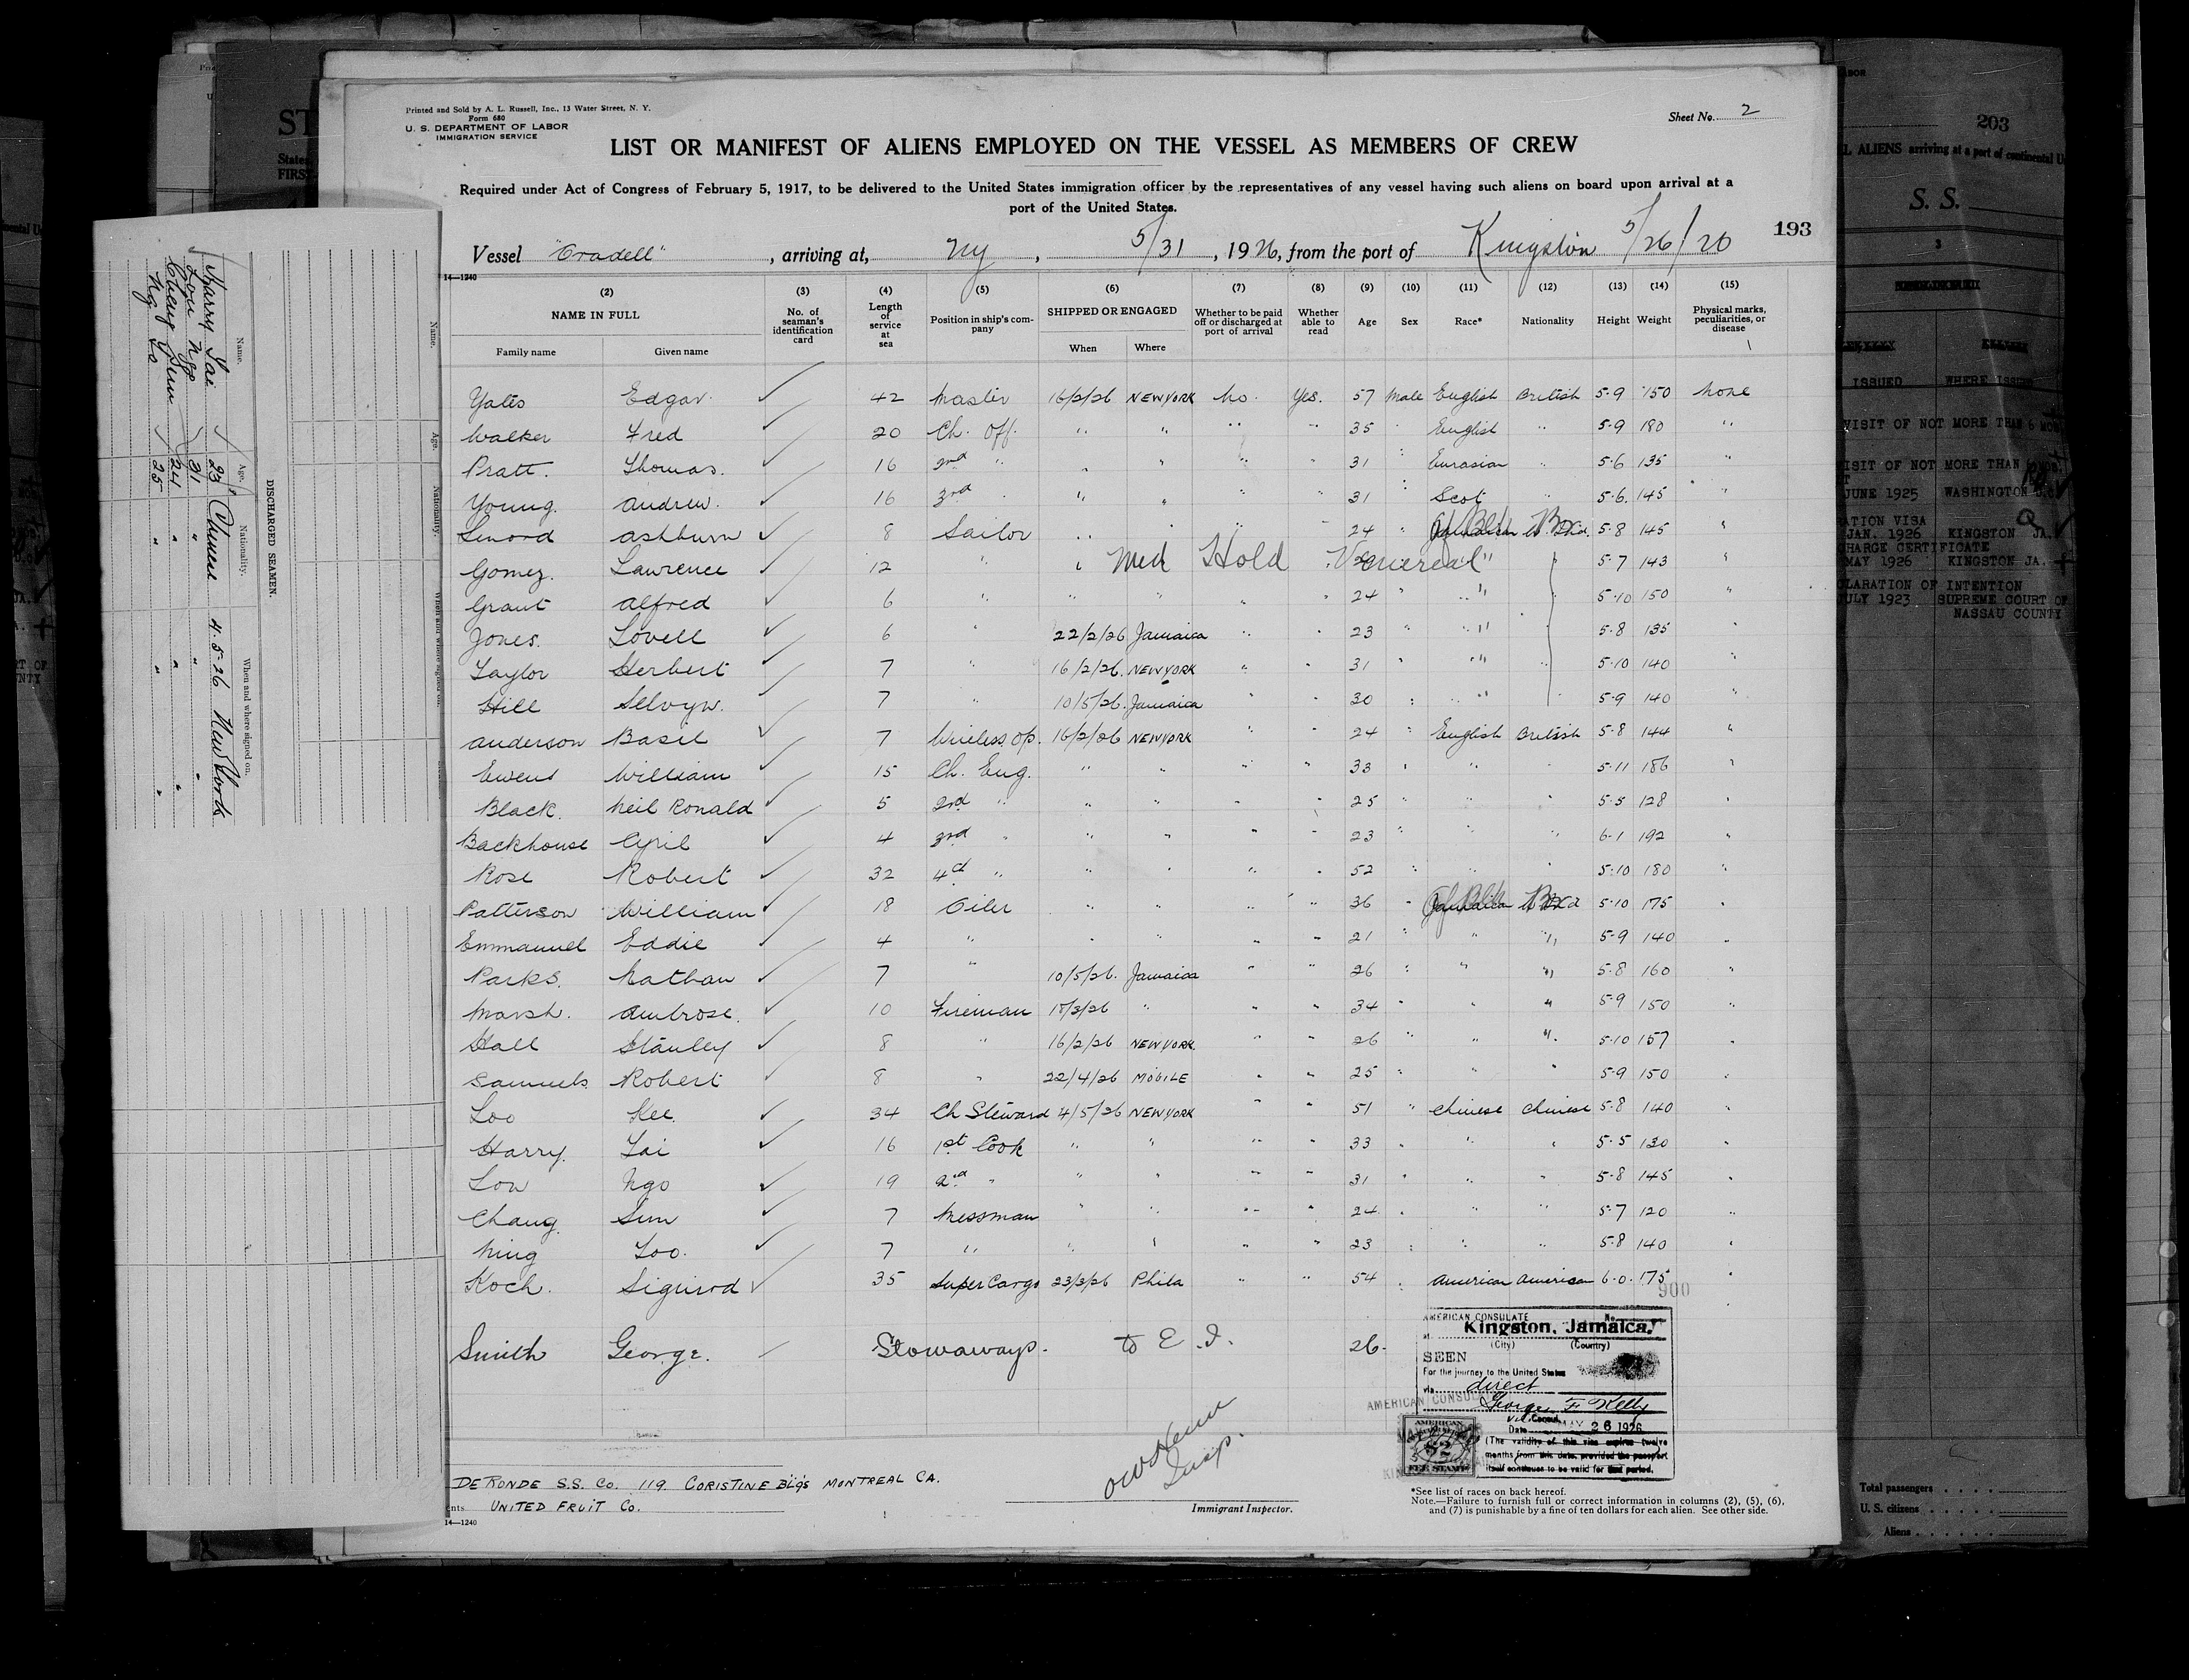 Printed and Sold by A. L. Russell, Inc., 13 Water Street, N. Y.
Form 680
U. S. DEPARTMENT OF LABOR
IMMIGRATION SERVICE
Sheet No. 2
LIST OR MANIFEST OF ALIENS EMPLOYED ON THE VESSEL AS MEMBERS OF CREW
Required under Act of Congress of February 5, 1917, to be delivered to the United States immigration officer by the representatives of any vessel having such aliens on board upon arrival at a
port of the United States.
193
Vessel "Oradell", arriving at, NY, 5/31, 1926, from the port of Kingston 5/26/26
14—1240
(2) (3) (4) (5) (6) (7) (8) (9) (10) (11) (12) (13) (14) (15)
NAME IN FULL
Family name Given name
No. of seaman's identification card
Length of service at sea
Position in ship's company
SHIPPED OR ENGAGED
When Where
Whether to be paid off or discharged at port of arrival
Whether able to read
Age Sex Race* Nationality Height Weight
Physical marks, peculiarities, or disease
Yates Edgar ✓ 42 Master 16/2/26 NEW YORK No. Yes. 57 Male English British 5-9 150 None
Walker Fred ✓ 20 Ch. Off. " " " " 35 " English " 5-9 180 "
Pratt. Thomas. ✓ 16 2nd " " " " " 31 " Eurasian " 5-6 135 "
Young. Andrew. ✓ 16 3rd " " " " " 31 " Scot " 5-6. 145 "
Ashburn ✓ 8 Sailor " " " " 24 " Jamaican 5-8 145 "
Gomez. Lawrence ✓ 12 " " Med Hold Venereal " 5-7 143 "
Grant Alfred ✓ 6 " " " " " 24 " " 5-10 150 "
Jones. Lovell ✓ 6 " 22/2/26 Jamaica " " 23 " " " 5-8 135 "
Taylor Herbert ✓ 7 " 16/2/26. NEW YORK " " 31 " " " 5-10 140 "
Hill Selvyn. ✓ 7 " 10/5/26. Jamaica " " 30 " " 5-9 140 "
Anderson Basil ✓ 7 Wireless Op. 16/2/26 NEW YORK " " 24 " English British 5-8 144 "
Ewens William ✓ 15 Ch. Eng. " " " " 33 " " " 5-11 186 "
Black. Neil Ronald ✓ 5 2nd " " " " " 25 " " " 5-5 128 "
Backhouse Cyril ✓ 4 3rd " " " " " 23 " " " 6-1 192 "
Rose Robert ✓ 32 4th " " " " " 52 " " " 5-10 180 "
Patterson William ✓ 18 Oiler " " " " 36 " Jamaican 5-10 175 "
Emmanuel Eddie ✓ 4 " " " " " 21 " " " 5-9 140 "
Parks. Nathan ✓ 7 " 10/5/26. Jamaica " " 26 " " " 5-8 160 "
Marsh. Ambrose. ✓ 10 Fireman 18/3/26 " " " 34 " " " 5-9 150 "
Hall Stanley ✓ 8 " 16/2/26 NEW YORK. " " 26 " " " 5-10 157 "
Samuels Robert ✓ 8 " 22/4/26 MOBILE " " 25 " " " 5-9 150 "
Loo Kee. ✓ 34 Ch Steward 4/5/26 NEW YORK " " 51 " Chinese Chinese 5-8 140 "
Harry. Tai ✓ 16 1st Cook " " " " 33 " " " 5-5 130 "
Lou Ngo ✓ 19 2nd " " " " " 31 " " " 5-8 145 "
Chang. Sun ✓ 7 Messman " " " " 24. " " " 5-7 120 "
Ning Loo. ✓ 7 " " " " " 23 " " " 5-8 140 "
Koch. ✓ 35 Super Cargo 23/3/26 Phila " " 54 " American American 6-0. 175 "
900
Smith George. Stowaways. to E. I. 26.
AMERICAN CONSULATE
at Kingston, Jamaica.
(City) (Country)
SEEN
For the journey to the United States
via direct
George F. Kelly
Vice Consul.
Date MAY 26 1926
(The validity of this visa expires twelve
months from this date, provided the passport
itself continues to be valid for that period.
AMERICAN
$2
FEE STAMP
DE RONDE S.S. CO. 119. CORISTINE Bl'g's MONTREAL CA.
UNITED FRUIT Co.
Insp.
Immigrant Inspector.
*See list of races on back hereof.
Note.—Failure to furnish full or correct information in columns (2), (5), (6),
and (7) is punishable by a fine of ten dollars for each alien. See other side.
14—1240
DISCHARGED SEAMEN.
Name. Age. Nationality. When and where signed on.
Harry Tai 23 Chinese 4-5-26 New York
Lou Ngo 31 " " "
Cheng 24 " " "
Ng 25 " " "
Name. Age. Nationality.
203
L ALIENS arriving at a port of continental U
S. S.
3
ISSUED WHERE ISSUED
VISIT OF NOT MORE THAN 6 MOS.
VISIT OF NOT MORE THAN
JUNE 1925 WASHINGTON D.C.
RATION VISA
JAN. 1926 KINGSTON JA.
CHARGE CERTIFICATE
MAY 1926 KINGSTON JA.
CLARATION OF INTENTION
JULY 1923 SUPREME COURT OF
NASSAU COUNTY
Total passengers
U. S. citizens
Aliens